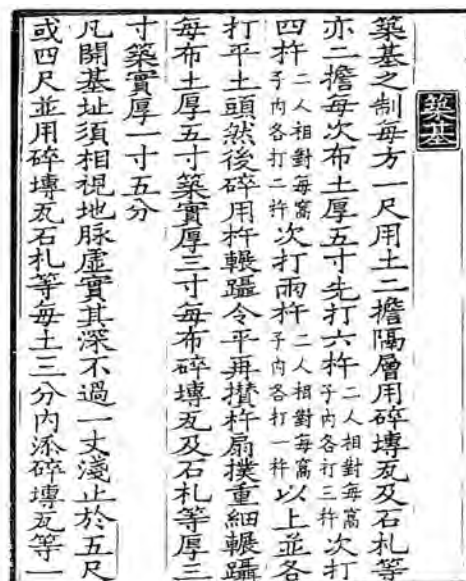 築基
築基之制每方一尺用土二擔隔層用碎塼瓦及石札等
亦二擔每次布土厚五寸先打六杵二人相對每窩子內各打三杵次打
四杵二人相對每窩子內各打二杵次打兩杵二人相對每窩子內各打一杵以上並各
打平土頭然後碎用杵輾躡令平再攢杵扇撲重細輾躡
每布土厚五寸築實厚三寸每布碎塼瓦及石札等厚三
寸築實厚一寸五分
凡開基址須相視地脉虛實其深不過一丈淺止於五尺
或四尺並用碎塼瓦石札等每土三分內添碎塼瓦等一